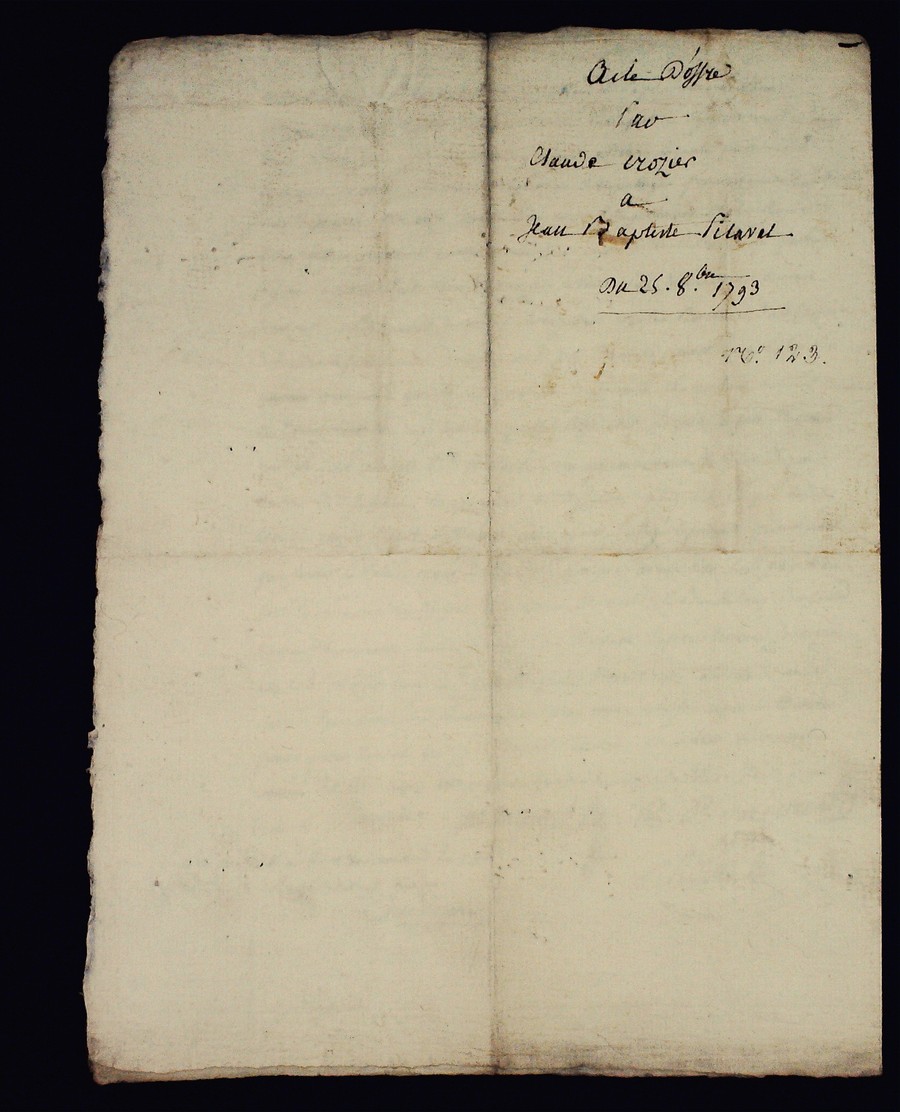 Acte D'offre
Par
Claude Crozier
a
Jean Baptiste Pitaval
Du 25. 8.bre 1793
No. 123.